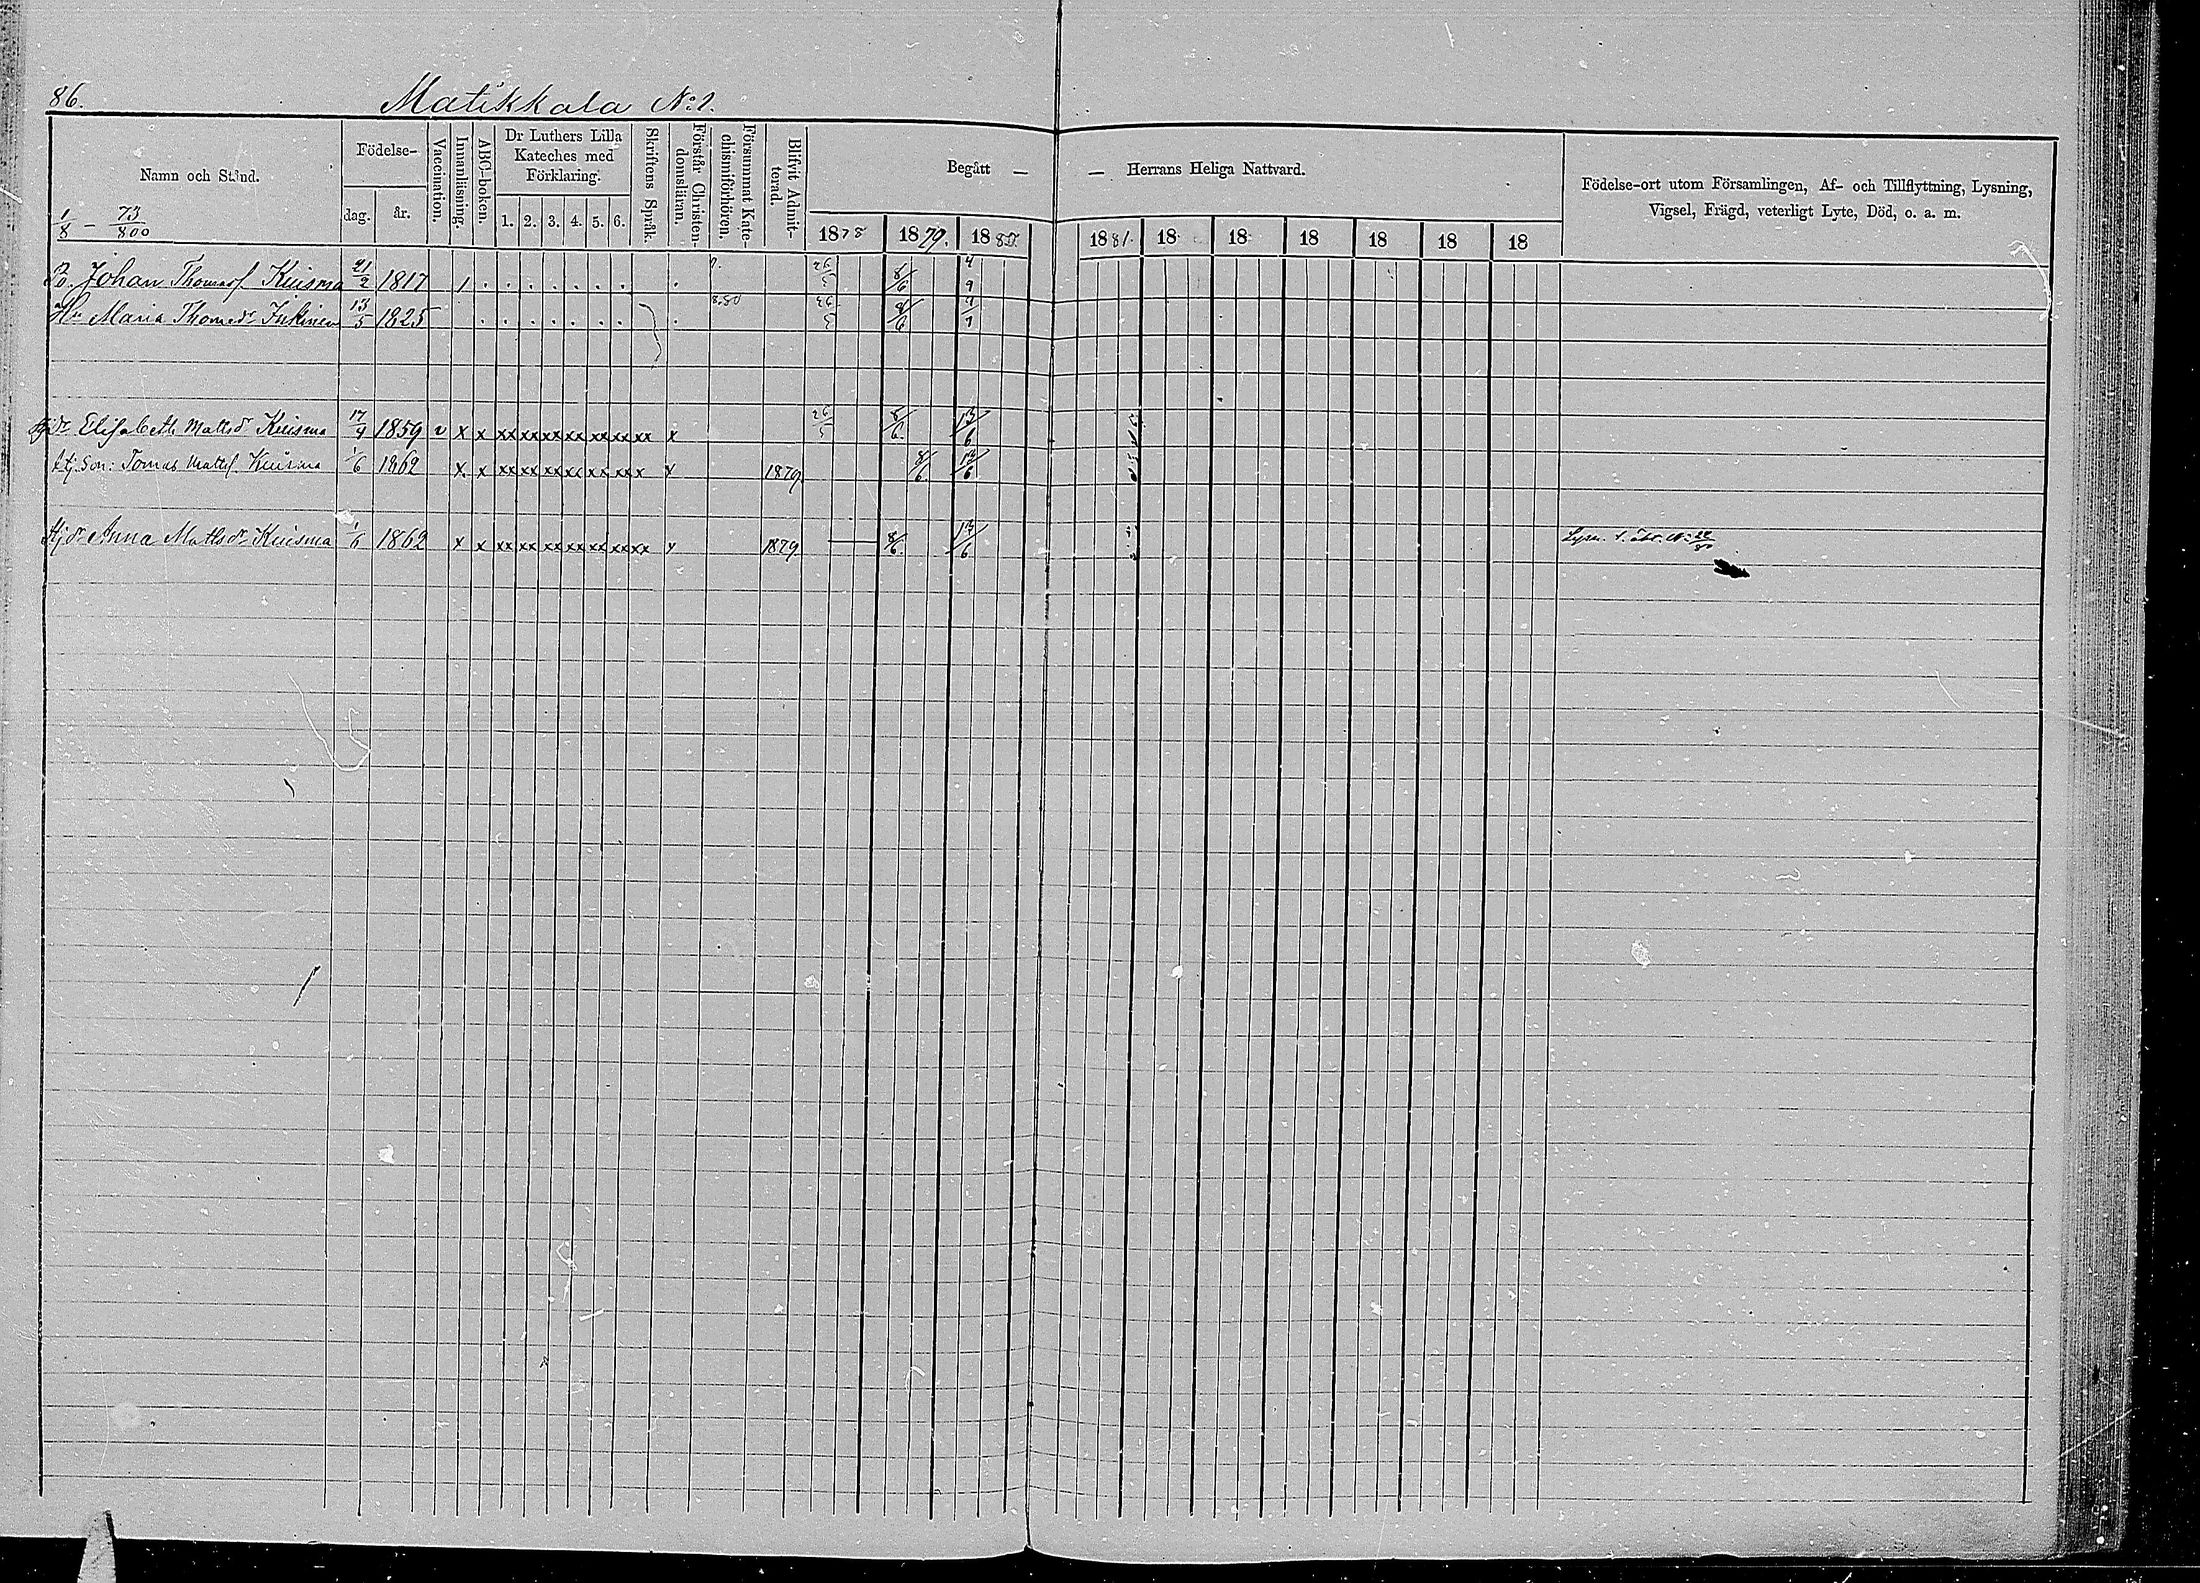 86. Matikkala No 1.
Namn och Stånd.
1/8 — 73/800
Födelse-
dag. år.
Vaccination.
Innanläsning.
ABC-boken.
Dr Luthers Lilla
Kateches med
Förklaring.
1. 2. 3. 4. 5. 6.
Skriftens Språk.
Förstår Christen-
domsläran.
Försummat Kate-
chismiförhören.
Blifvit Admit-
terad.
Begått — — Herrans Heliga Nattvard.
1878 1879. 1880. 1881. 18 18 18 18 18 18
Födelse-ort utom Församlingen, Af- och Tillflyttning, Lysning,
Vigsel, Frägd, veterligt Lyte, Död, o. a. m.
Bo. Johan Thomass. Kuisma 21/2 1817 26/5 8/6
Hu Maria Thomasdr Inkinen 13/5 1825 8.80 26/5 8/6
dr Elisabeth Mattsdr Kuisma 17/9 1859 v x x xx xx xx xx xx xx xx x 26/5 8/6. 13/6
Stj.son: Tomas Matts. Kuisma 1/6 1862 x x xx xx xx xx xx xx x x 1879. 8/6. 13/6.
Stjdr Anna Mattsdr Kuisma 1/6 1862 x x xx xx xx xx xx xx xx x 1879 — 8/6. 13/6.